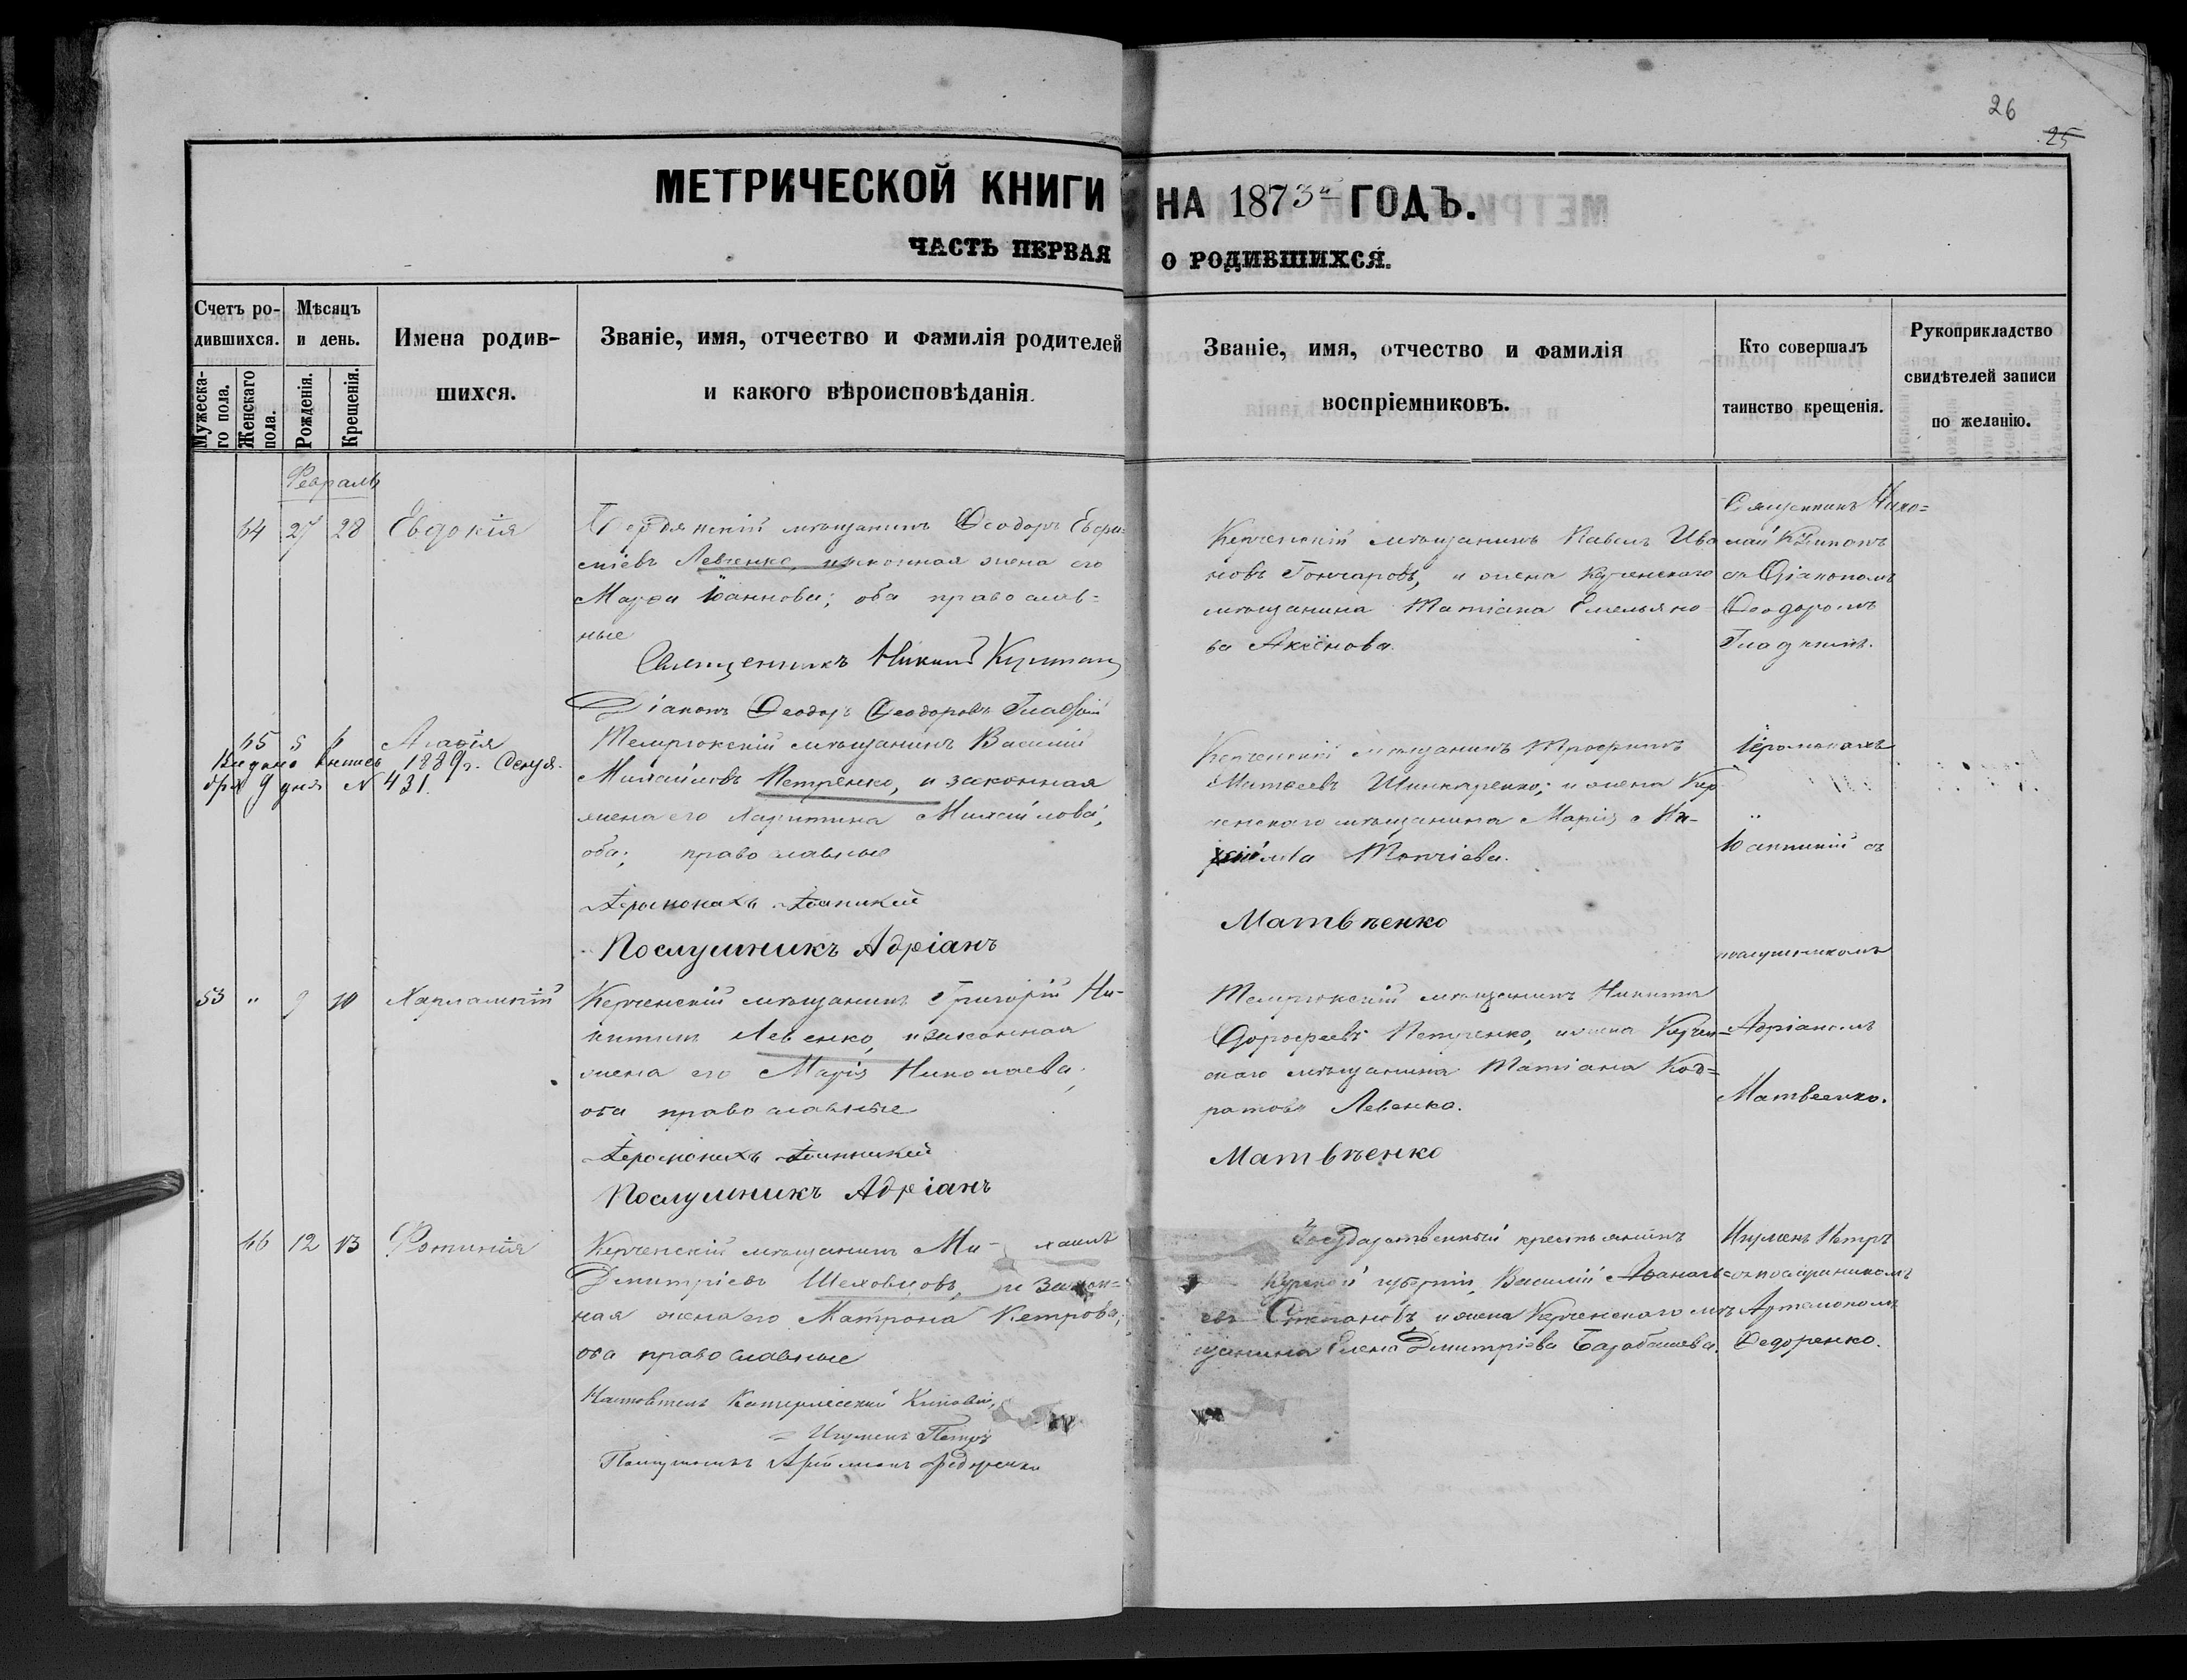 26
25
МЕТРИЧЕСКОЙ КНИГИ НА 1873й ГОДЪ.
ЧАСТЬ ПЕРВАЯ О РОДИВШИХСЯ.
Счетъ ро-
дившихся.
Мужеска-
го пола.
Женскаго
пола.
Мѣсяцъ
и день.
Рожденія.
Крещенія.
Имена родив-
шихся.
Званіе, имя, отчество и фамилія родителей
и какого вѣроисповѣданія.
Званіе, имя, отчество и фамилія
воспріемниковъ.
Кто совершалъ
таинство крещенія.
Рукоприкладство
свидѣтелей записи
по желанію.
Февраль
44 27 28 Евдокія
Бердянскій мѣщанинъ Ѳеодоръ Евфи-
міевъ Левченко, и законная жена его
Марѳа Іоаннова; оба православ=
ные
Священникъ
Діаконъ Ѳеодоръ Ѳеодоровъ Гладкій
Керченскій мѣщанинъ Павелъ Ива
новъ Гончаровъ, и жена Керченскаго
мѣщанина Татіана Емельяно
ва Аксёнова.
Священникъ Нико=
лай
съ Діакономъ
Ѳеодоромъ
Гладкимъ.
45 5 6 Агаѳія
Выдано 1889 г. Сентя-
бря 9 дня № 431.
Темрюкскій мѣщанинъ Василій
Михайловъ Петренко, и законная
жена его Харитина Михайлова;
оба; православные
Іеромонахъ Іоанникій
Послушникъ Адріанъ
Керченскій мѣщанинъ Трофимъ
Матвеевъ Шинкаренко; и жена Кер
ченскаго мѣщанина Марія
Матвѣенко
Іеромонахъ
Іоанникій съ
послушникомъ
53 " 9 10 Харлампій
Керченскій мѣщанинъ Григорій Ни-
китинъ Левенко, и законная
жена его Марія Николаева;
оба православные
Іеромонахъ Іоанникій
Послушникъ Адріанъ
Темрюкскій мѣщанинъ Никита
Дорофеевъ Петренко, и жена Керчен=
скаго мѣщанина Татіана Код=
ратова Левенко.
Матвѣенко
Адріаномъ
Матвеенко.
46 12 13 Фотинія
Керченскій мѣщанинъ Ми-хаилъ
Дмитріевъ Шеховцовъ, и закон=
ная жена его Матрона Петрова;
оба православные
Настоятель Катерлесской Киновіи,
Игуменъ Петръ
Послушникъ Артемонъ Федоренко
Государственный крестьянинъ
Курской губерніи, Василій Аѳанась-
евъ Степановъ, и жена Керченскаго мѣ
щанина Елена Дмитріева Барабашева.
Игуменъ Петръ
съ послушникомъ
Артемономъ
Федоренко.